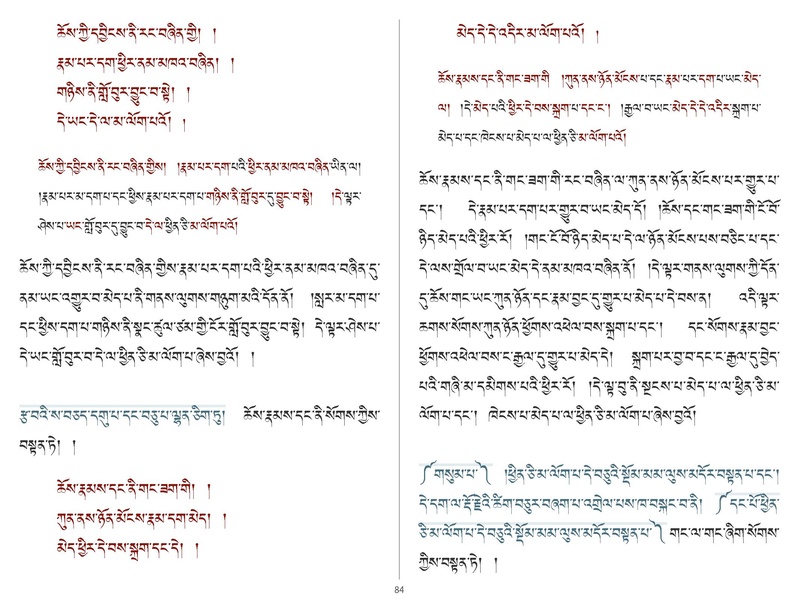 ཆོས་ཀྱི་དབྱིངས་ནི་རང་བཞིན་གྱི། །
རྣམ་པར་དག་ཕྱིར་ནམ་མཁའ་བཞིན། །
གཉིས་ནི་གློ་བུར་བྱུང་བ་སྟེ། །
དེ་ཡང་དེ་ལ་མ་ལོག་པའོ། །
ཆོས་ཀྱི་དབྱིངས་ནི་རང་བཞིན་གྱིས། །རྣམ་པར་དག་པའི་ཕྱིར་ནམ་མཁའ་བཞིན་ཡིན་ལ།
།རྣམ་པར་མ་དག་པ་དང་ཕྱིས་རྣམ་པར་དག་པ་གཉིས་ནི་གློ་བུར་དུ་བྱུང་བ་སྟེ། །དེ་ལྟར་
ཤེས་པ་ཡང་གློ་བུར་དུ་བྱུང་བ་དེ་ལ་ཕྱིན་ཅི་མ་ལོག་པའོ།
ཆོས་ཀྱི་དབྱིངས་ནི་རང་བཞིན་གྱིས་རྣམ་པར་དག་པའི་ཕྱིར་ནམ་མཁའ་བཞིན་དུ་
ནམ་ཡང་འགྱུར་བ་མེད་པ་ནི་གནས་ལུགས་གཉུག་མའི་དོན་ནོ། །སླར་མ་དག་པ་
དང་ཕྱིས་དག་པ་གཉིས་ནི་སྣང་ཚུལ་ཙམ་གྱི་ངོར་གློ་བུར་བྱུང་བ་སྟེ། དེ་ལྟར་ཤེས་པ་
དེ་ཡང་གློ་བུར་བ་དེ་ལ་ཕྱིན་ཅི་མ་ལོག་པ་ཞེས་བྱའོ། །
རྩ་བའི་ས་བཅད་དགུ་པ་དང་བཅུ་པ་ལྷན་ཅིག་ཏུ། ཆོས་རྣམས་དང་ནི་སོགས་ཀྱིས་
བསྟན་ཏེ། །
ཆོས་རྣམས་དང་ནི་གང་ཟག་གི། །
ཀུན་ནས་ཉོན་མོངས་རྣམ་དག་མེད། །
མེད་ཕྱིར་དེ་བས་སྐྲག་དང་དེ། །
མེད་དེ་དེ་འདིར་མ་ལོག་པའོ། །
ཆོས་རྣམས་དང་ནི་གང་ཟག་གི །ཀུན་ནས་ཉོན་མོངས་པ་དང་རྣམ་པར་དག་པ་ཡང་མེད་
ལ། །དེ་མེད་པའི་ཕྱིར་དེ་བས་སྐྲག་པ་དང་ང་། །རྒྱལ་བ་ཡང་མེད་དེ་དེ་འདིར་སྐྲག་པ་
མེད་པ་དང་ཁེངས་པ་མེད་པ་ལ་ཕྱིན་ཅི་མ་ལོག་པའོ།
ཆོས་རྣམས་དང་ནི་གང་ཟག་གི་རང་བཞིན་ལ་ཀུན་ནས་ཉོན་མོངས་པར་གྱུར་པ་
དང་། དེ་རྣམ་པར་དག་པར་གྱུར་བ་ཡང་མེད་དོ། །ཆོས་དང་གང་ཟག་གི་ངོ་བོ་
ཉིད་མེད་པའི་ཕྱིར་རོ། །གང་ངོ་བོ་ཉིད་མེད་པ་དེ་ལ་ཉོན་མོངས་པས་བཅིང་པ་དང་
དེ་ལས་གྲོལ་བ་ཡང་མེད་དེ་ནམ་མཁའ་བཞིན་ནོ། །དེ་ལྟར་གནས་ལུགས་ཀྱི་དོན་
དུ་ཆོས་གང་ཡང་ཀུན་ཉོན་དང་རྣམ་བྱང་དུ་གྱུར་པ་མེད་པ་དེ་བས་ན། འདི་ལྟར་
ཆགས་སོགས་ཀུན་ཉོན་ཕྱོགས་འཕེལ་བས་སྐྲག་པ་དང་། དང་སོགས་རྣམ་བྱང་
ཕྱོགས་འཕེལ་བས་ང་རྒྱལ་དུ་གྱུར་པ་མེད་དེ། སྐྲག་པར་བྱ་བ་དང་ང་རྒྱལ་དུ་བྱེད་
པའི་གཞི་མ་དམིགས་པའི་ཕྱིར་རོ། །དེ་ལྟ་བུ་ནི་སྔངས་པ་མེད་པ་ལ་ཕྱིན་ཅི་མ་
ལོག་པ་དང་། ཁེངས་པ་མེད་པ་ལ་ཕྱིན་ཅི་མ་ལོག་པ་ཞེས་བྱའོ།
༼གསུམ་པ་༽ །ཕྱིན་ཅི་མ་ལོག་པ་དེ་བཅུའི་སྡོམ་མམ་ལུས་མདོར་བསྟན་པ་དང་།
དེ་དག་ལ་རྡོ་རྗེའི་ཚིག་བཅུར་བཞག་པ་འགྲེལ་པས་ཁ་བསྐང་བ་ནི། ༼དང་པོ་ཕྱིན་
ཅི་མ་ལོག་པ་དེ་བཅུའི་སྡོམ་མམ་ལུས་མདོར་བསྟན་པ་༽ གང་ལ་གང་ཞིག་སོགས་
ཀྱིས་བསྟན་ཏེ། །
84